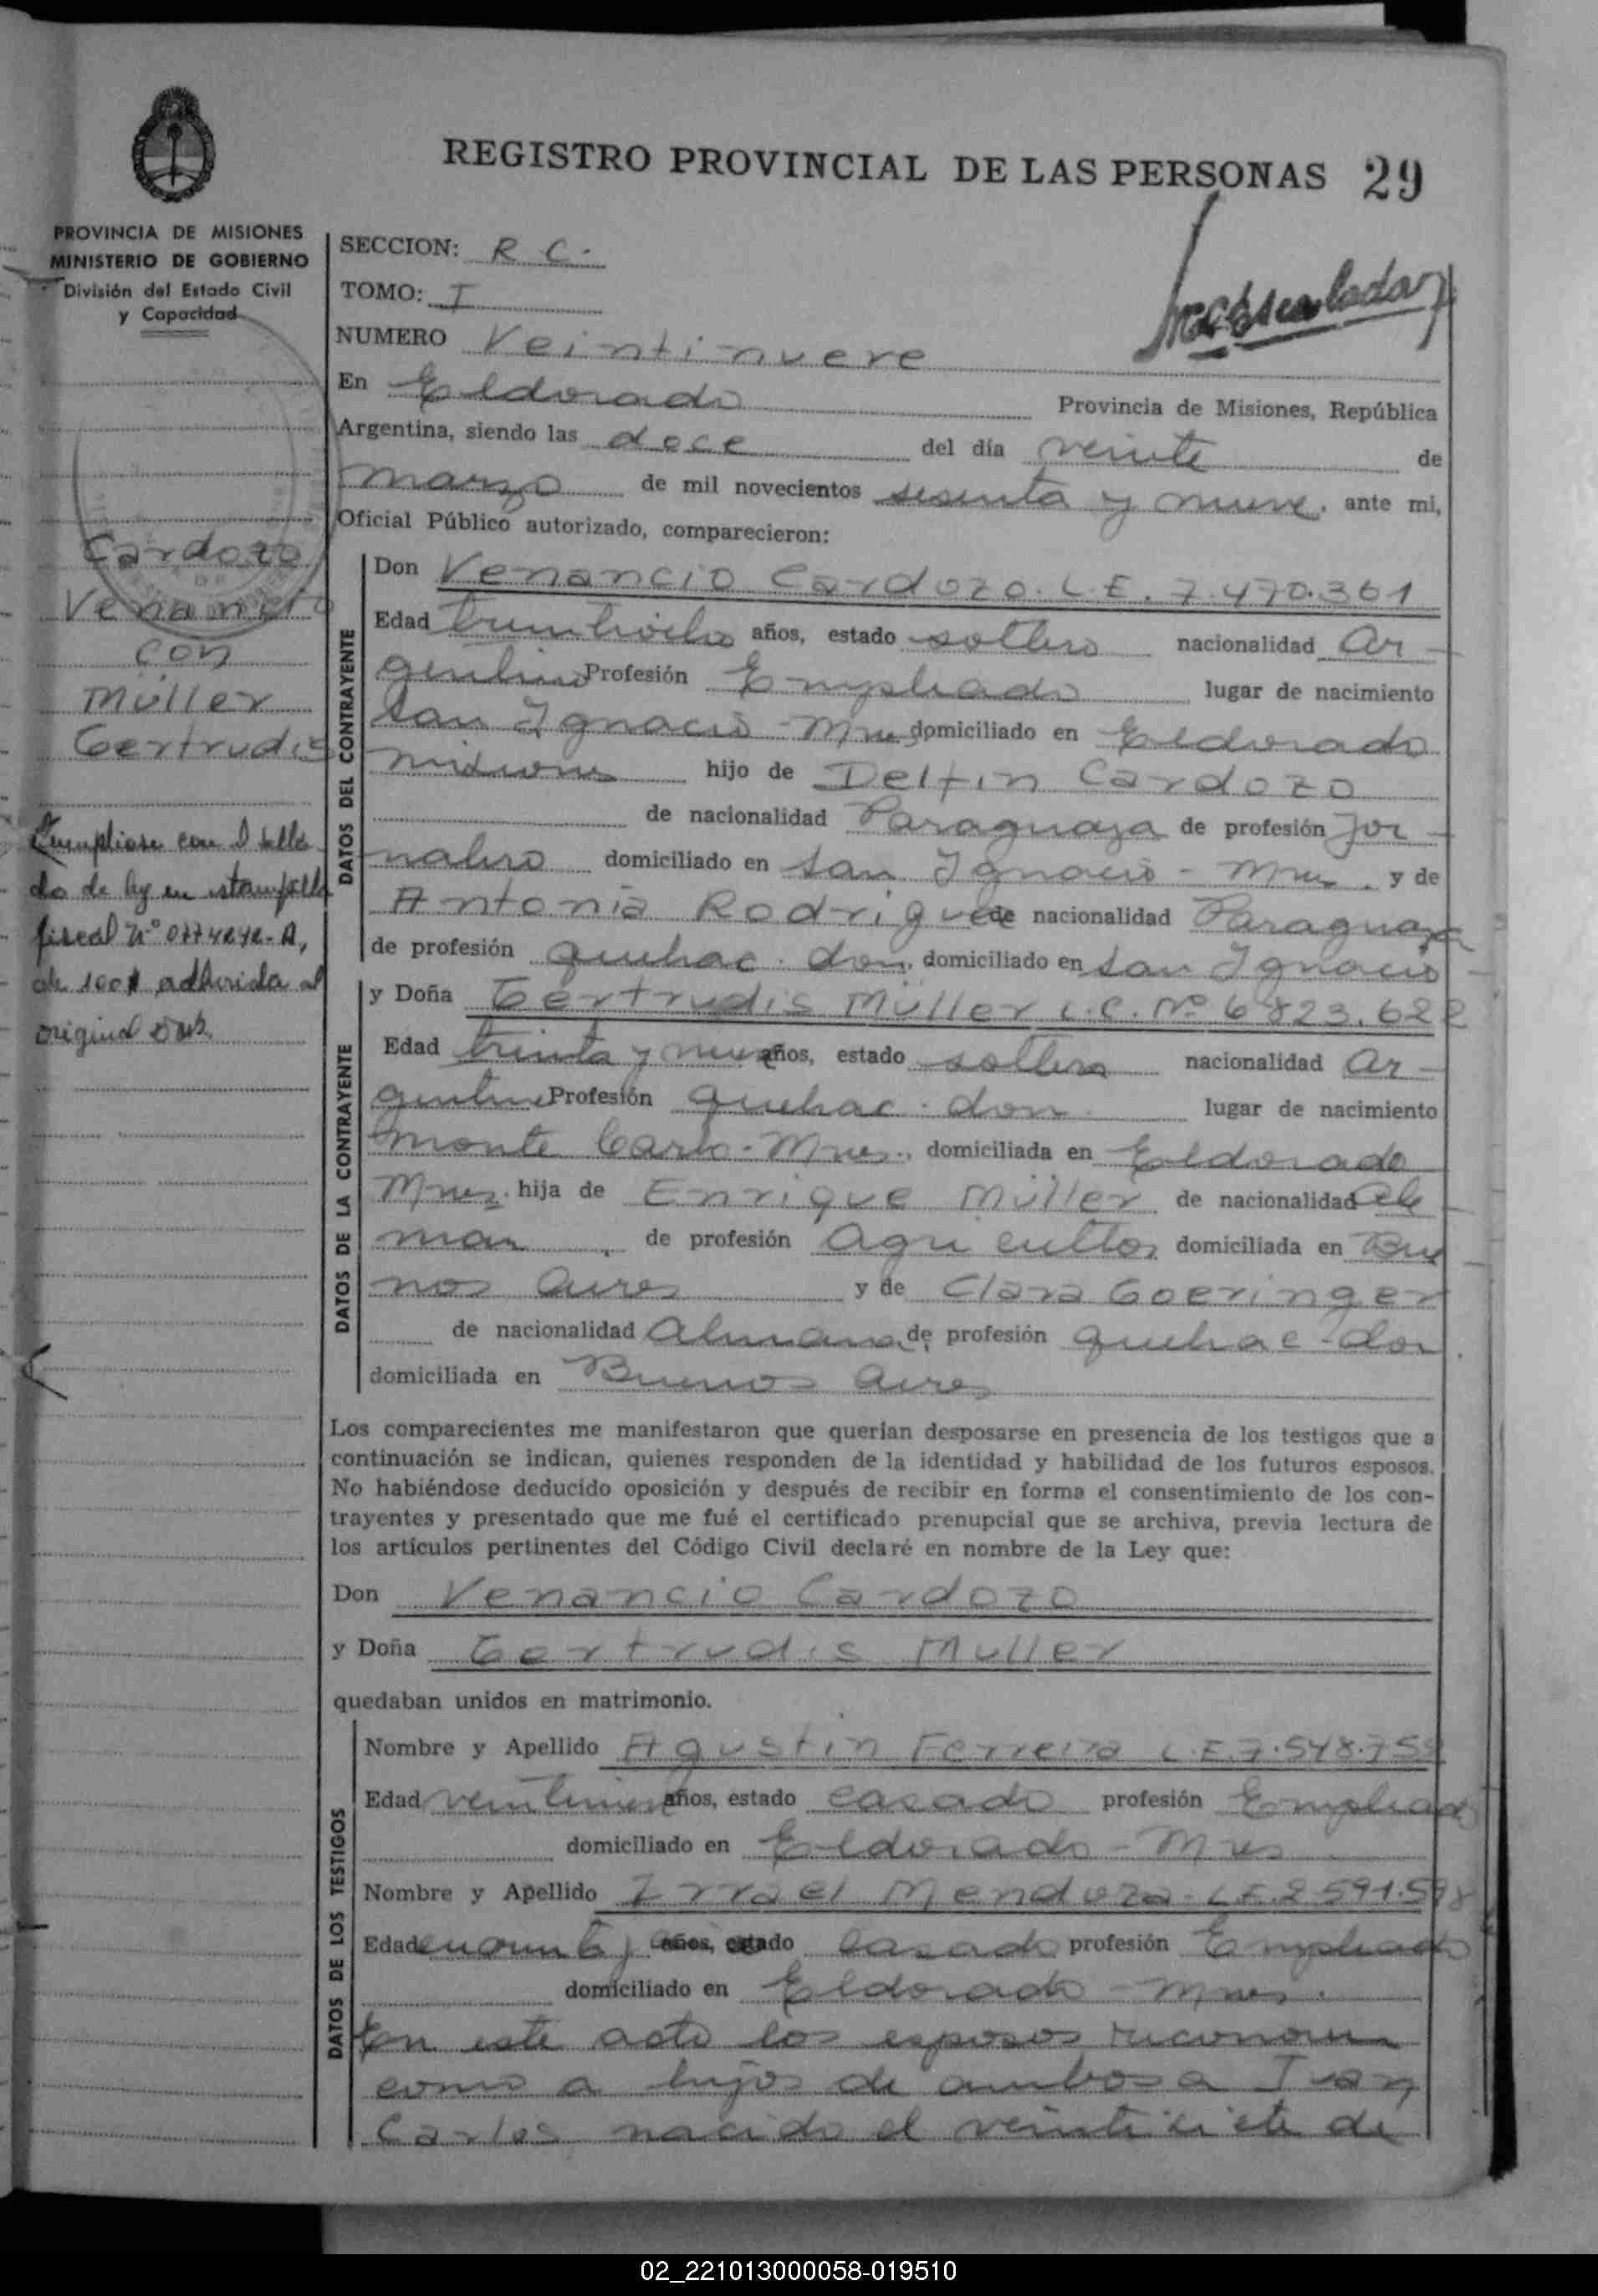 REGISTRO PROVINCIAL DE LAS PERSONAS 29
PROVINCIA DE MISIONES
MINISTERIO DE GOBIERNO
División del Estado Civil
y Capacidad
SECCION: R C.
TOMO: I
NUMERO Veintinueve
En Eldorado Provincia de Misiones, República
Argentina, siendo las doce del día veinte de
marzo de mil novecientos sesenta y nueve. ante mi,
Oficial Público autorizado, comparecieron:
Cardozo
Venancio
con
Müller
Gertrudis
Cumpliose con el sella
do de ley en estampilla
fiscal Nº
de 100$ adherida al
original
DATOS DEL CONTRAYENTE
Don Venancio Cardozo. L.E. 7.470.361
Edad treintiocho años, estado soltero nacionalidad Ar-
gentino Profesión Empleado lugar de nacimiento
San Ignacio - Mnes domiciliado en Eldorado
misiones hijo de Delfin Cardozo
de nacionalidad Paraguaya de profesión Jor-
nalero domiciliado en San Ignacio - Mnes. y de
Antonia Rodrigue de nacionalidad Paraguaya
de profesión quehac. dom. domiciliado en San Ignacio -
DATOS DE LA CONTRAYENTE
y Doña Gertrudis Müller L.C. Nº 6.823.622
Edad treinta y nueve años, estado soltera nacionalidad Ar-
gentina Profesión quehac. dom. lugar de nacimiento
Monte Carlo - Mnes., domiciliada en Eldorado
Mnes. hija de Enrique Müller de nacionalidad ale-
man, de profesión Agricultor domiciliada en Bue
nos Aires y de Clara Goeringer
de nacionalidad Alemana de profesión quehac-dom.
domiciliada en Buenos Aires
Los comparecientes me manifestaron que querían desposarse en presencia de los testigos que a
continuación se indican, quienes responden de la identidad y habilidad de los futuros esposos.
No habiéndose deducido oposición y después de recibir en forma el consentimiento de los con-
trayentes y presentado que me fué el certificado prenupcial que se archiva, previa lectura de
los artículos pertinentes del Código Civil declaré en nombre de la Ley que:
Don Venancio Cardozo
y Doña Gertrudis Muller
quedaban unidos en matrimonio.
DATOS DE LOS TESTIGOS
Nombre y Apellido Agustin Ferreira L.E. 7.548.752
Edad años, estado casado profesión Empleado
domiciliado en Eldorado - Mnes
Nombre y Apellido Irrael Mendoza - L.E. 2.591.598
Edad años, estado casado profesión Empleado
domiciliado en Eldorado - Mnes.
En este acto los esposos reconocen
como a hijos de ambos a Juan
Carlos nacido el veintisiete de
02_221013000058-019510